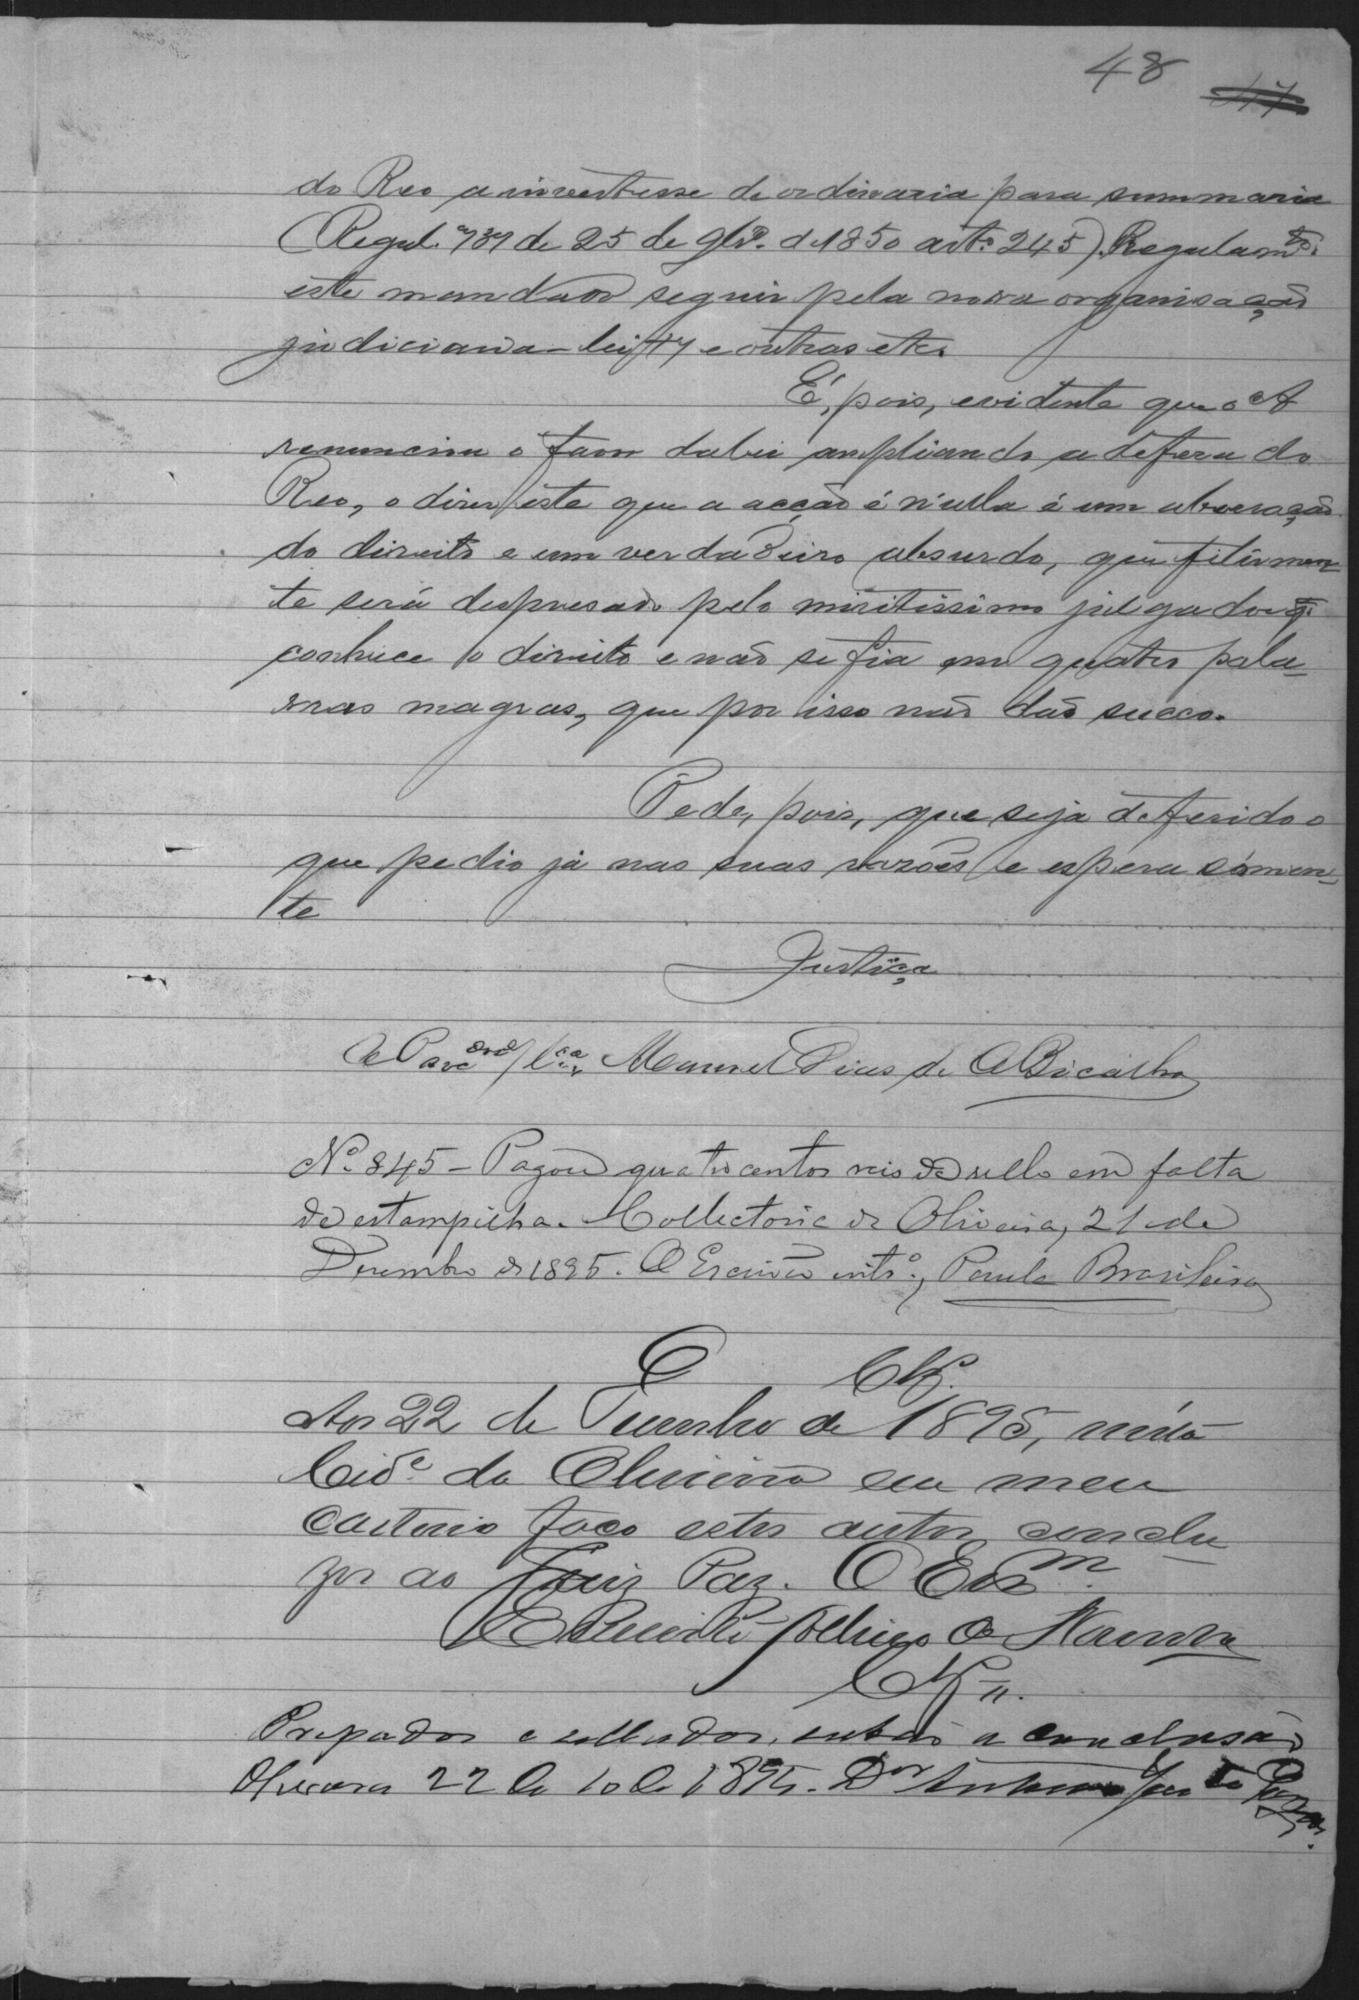 48 47
do Reo a invertesse de ordinaria para summaria
(Regul. 737 de 25 de 9br. de 1850 art.º 245). Regulamto.
este mandado seguir pela nova organisação
judiciaria - lei 17 e outras etc.
É, pois, evidente que o A
renunciou o favor da lei ampliando a defeza do
Reo, o dizer este que a acção é nulla é um aberração
do direito e um verdadeiro absurdo, que felizmen-
te será despresado pelo meritissimo julgador q.
conhece o direito e não se fia em quatro pala-
vras magras, que por isso não dão succo.
Pede, pois, que seja deferido o
que pedio já nas suas razões e espera sómen-
te
Justiça
O Procdor Manoel Dias de A Bicalho
Nº 845 - Pagou quatrocentos reis de sello em falta
de estampilha. Collectoria de Oliveira, 21 de
Dezembro de 1895. O Escrivão intº., Paula Brasileiro
Clz.
Aos 22 de Dezembro de 1895, nésta
Cide. da Oliveira em meu
Cartorio faço estes autos conclu
zos ao Juiz Paz. O Escm.
Clz
Preparados e sellados, subão a conclusão
Oliveira 22 de 10 de 1895. Dor Antonio José de